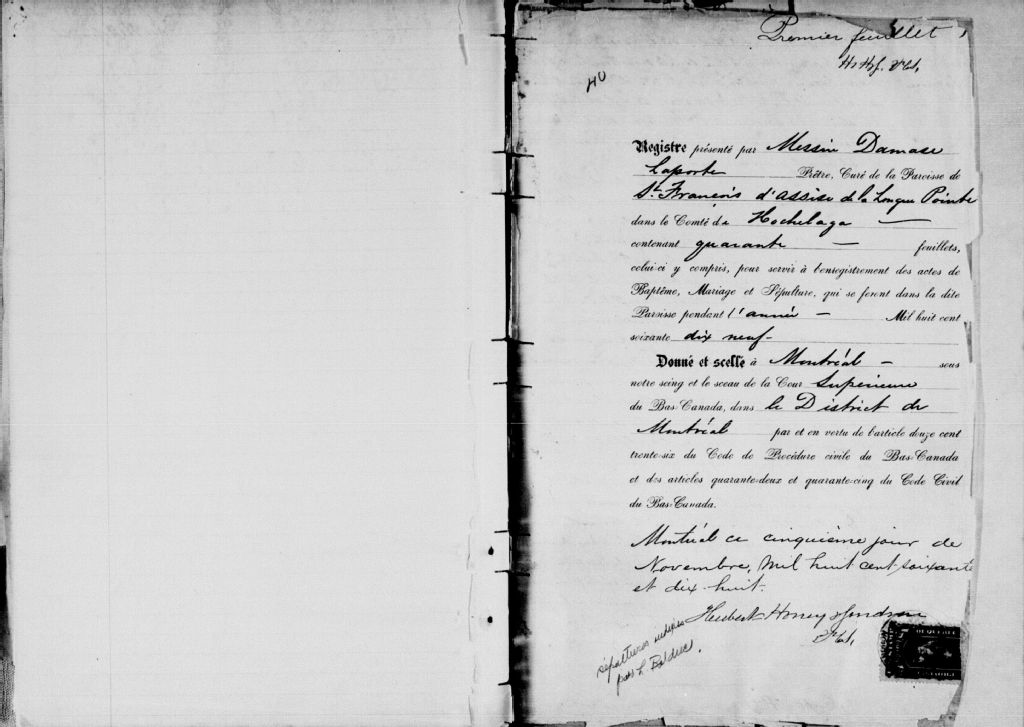 Premier feuillet
40
Registre présenté par Messire Damase
Laporte Prêtre, Curé de la Paroisse de
St. François d'assise de la Longue Pointe
dans le Comté de Hochelaga —
contenant quarante — feuillets,
celui-ci y compris, pour servir à l'enregistrement des actes de
Baptême, Mariage et Sépulture, qui se feront dans la dite
Paroisse pendant l'année — Mil huit cent
soixante dix neuf -
Donné et scellé à Montréal — sous
notre seing et le sceau de la Cour Supérieure
du Bas-Canada, dans le District de
Montréal par et en vertu de l'article douze cent
trente-six du Code de Procédure civile du Bas-Canada
et des articles quarante-deux et quarante-cinq du Code Civil
du Bas-Canada.
Montréal ce cinquième jour de
Novembre, Mil huit cent soixante
et dix-huit.
Hubert Honey
sépultures
par L. Balduc.